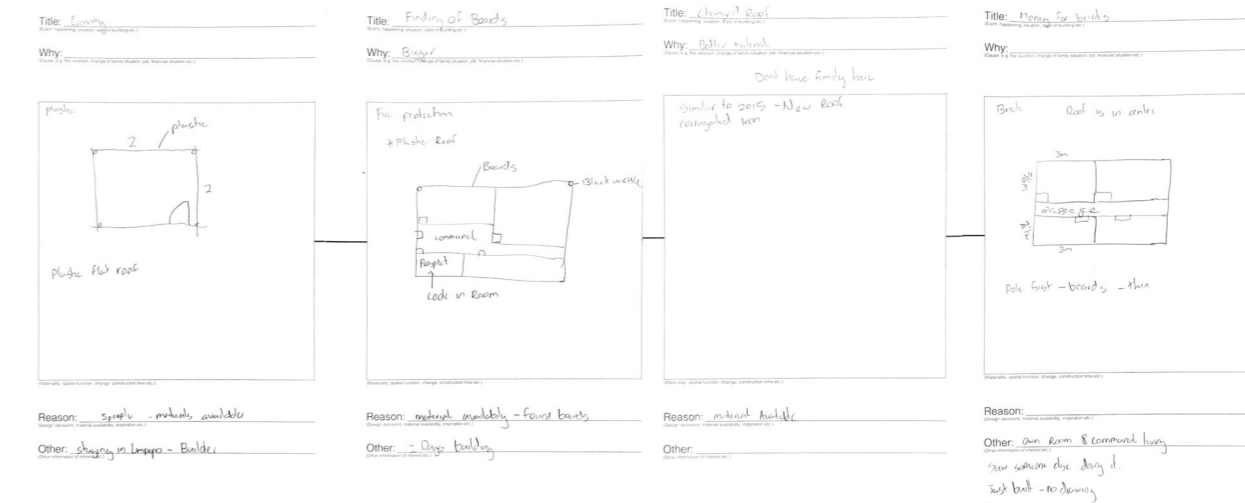 Title:
(Event happening, situation, state of building etc.)
Why:
(Cause: e.g. fire, eviction, change of family situation, job, financial situation etc.)
plastic
2
plastic
2
Plastic flat roof
(Materiality, spatial function, change, construction time etc.)
Reason: - materials available
(Design decisions, material availability, inspiration etc.)
Other: staying in - Builder
(Other information of interest etc.)
Title: Finding of Boards
(Event happening, situation, state of building etc.)
Why: Bigger
(Cause: e.g. fire, eviction, change of family situation, job, financial situation etc.)
Fire protection
+ Plastic Roof
Boards
Black wattle
communal
cook in Room
(Materiality, spatial function, change, construction time etc.)
Reason: material availably - found boards
(Design decisions, material availability, inspiration etc.)
Other: Days building
(Other information of interest etc.)
Title: Changed Roof
(Event happening, situation, state of building etc.)
Why: Better material
(Cause: e.g. fire, eviction, change of family situation, job, financial situation etc.)
Dont have family here
Similar to 2015 - New Roof
corrugated Iron
(Materiality, spatial function, change, construction time etc.)
Reason: material Available
(Design decisions, material availability, inspiration etc.)
Other:
(Other information of interest etc.)
Title: Money for bricks
(Event happening, situation, state of building etc.)
Why:
(Cause: e.g. fire, eviction, change of family situation, job, financial situation etc.)
Brick
Roof is in centre
3m
passage
3m
Pole first - boards - then
(Materiality, spatial function, change, construction time etc.)
Reason:
(Design decisions, material availability, inspiration etc.)
Other: own Room & communal living
(Other information of interest etc.)
Saw someone else doing it.
Just built - no drawing